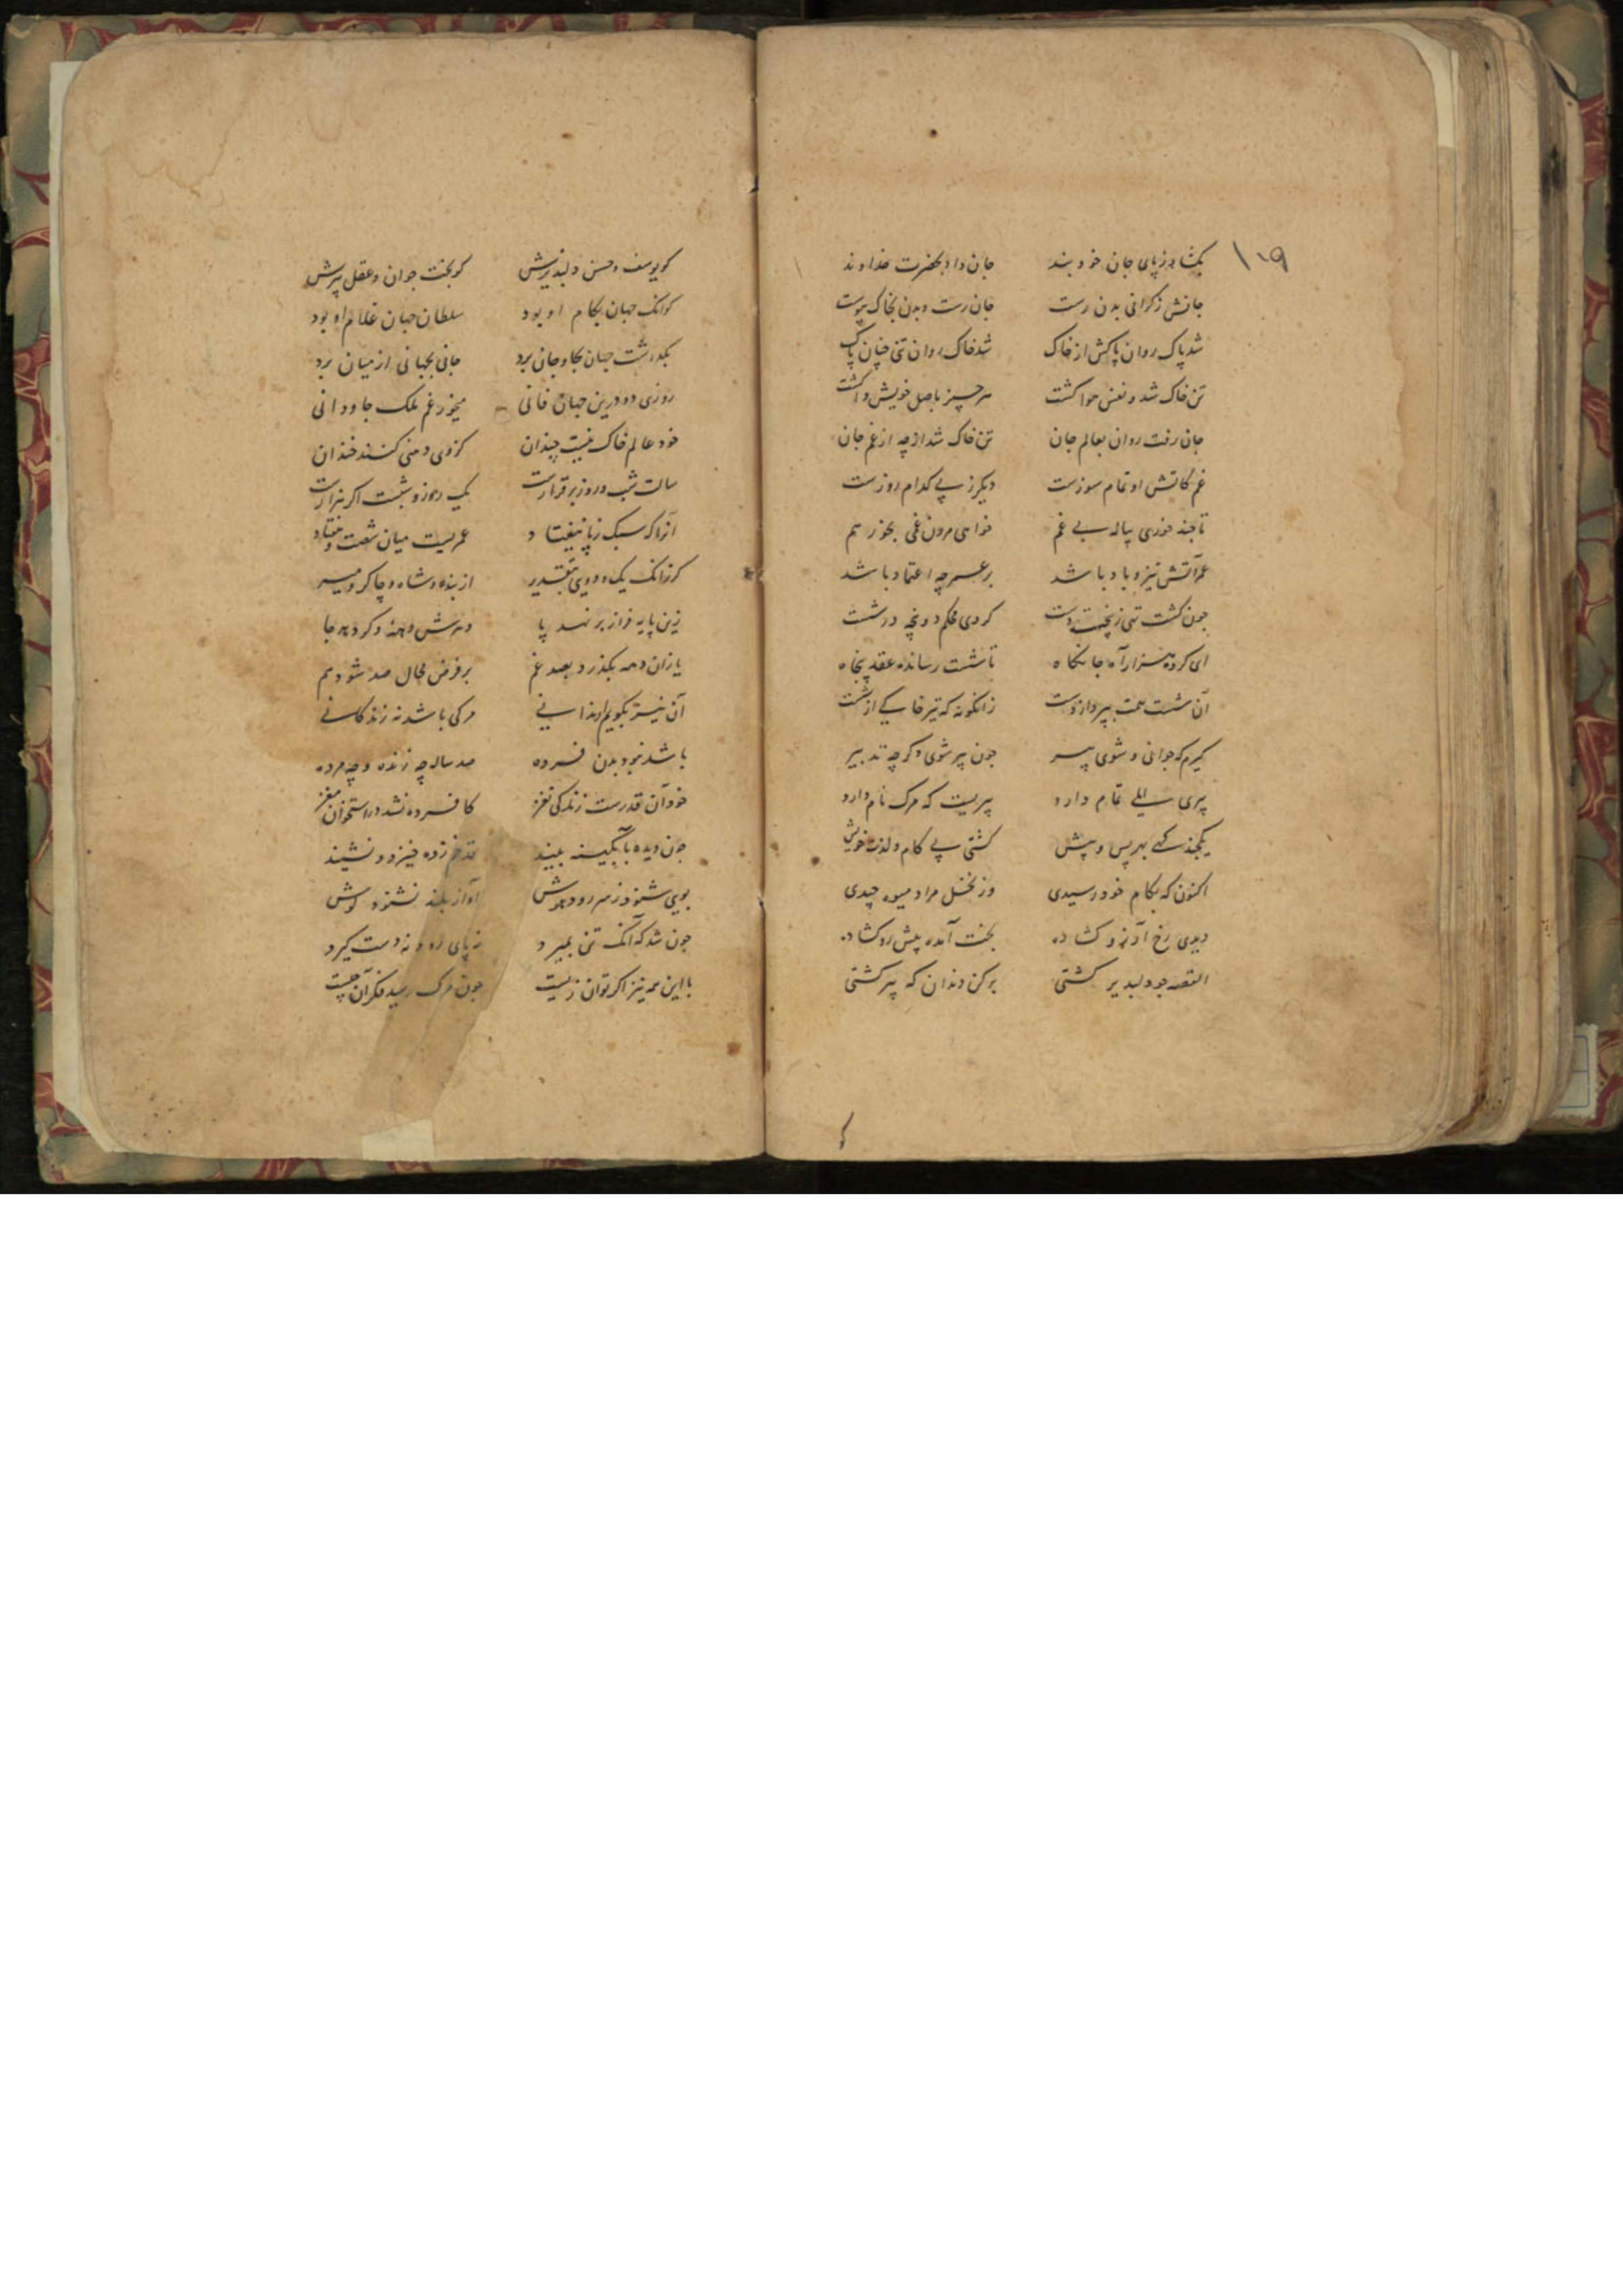 ۱۰۹
بکشاد ز پای جان خود بند جان داد بحضرت خداوند
جانش ز کرانی بدن رست جان رست و بدن بخاک پیوست
شد پاک روان پاکش از خاک شد خاک روان تنی چنان پاک
تن خاک شد و نفس هوا کشت هر چیز باصل خویش وا کشت
جان رفت روان بعالم جان تن خاک شد از چه از غم جان
غم کاتش او تمام سوزست دیکر ز پی کدام روزست
تا چند خوری پیاله بی غم خواهی مردن غمی بخور هم
عمر آتش تیز و باد باشد بر عمر چه اعتماد باشد
چون کشت تهی ز پنجهت دست کردی محکم دو پنجه در شست
ای کرده هزار آه جانکاه تا شست رسانده عقد پنجاه
آن شست همت بپرد از دست زانکونه که تیر خاکی از شست
کیرم که جوانی و شوی پیر چون پیر شوی دکر چه تدبیر
پیری سیلی تمام دارد پیریست که مرک نام دارد
یکچند کهی بهر پس و پیش کشتی پی کام و لذت خویش
اکنون که بکام خود رسیدی وز نخل مراد میوه چیدی
دیدی رخ آرزو کشاده بخت آمده پیش رو کشاده
القصه چو دلپذیر کشتی برکن دندان که پیر کشتی
کو
کو یوسف و حسن دلپذیرش کو بخت جوان و عقل پیرش
کو آنک جهان بکام او بود سلطان جهان غلام او بود
بکذاشت جهان بجا و جان برد جانی بجهانی از میان برد
روزی دو درین جهان فانی میخور غم ملک جاودانی
خود عالم خاک نیست چندان کز وی دمنی کنند خندان
سالت شب و روز برقرارست یک روز و شبست اکر هزارست
آنرا که سبک ز پا نیفتاد عمریست میان شصت و هفتاد
کر زانک یک و دویی بتقدیر از بنده و شاه و چاکر و میر
زین پایه فراز بر نهد پا
یا زان همه بکذرد بصد غم بر فرض محال صد شود هم
آن نیز بکویم ار ندانی مرکی باشد نه زندکانی
باشد نبود بدن فسرده صد ساله چه زنده و چه مرده
خود آن قدرست زندکی نغز کافسرده نشد در استخوان مغز
چون دیده بآبکینه بیند قد خم زده خیزد و نشیند
بویی شنود ز سر رود هوش آواز بلند نشنود کوش
چون شد که آنک تن بمیرد نه پای رود نه دست کیرد
با این همه نیز اکر توان زیست چون مرک رسید فکر آن چیست